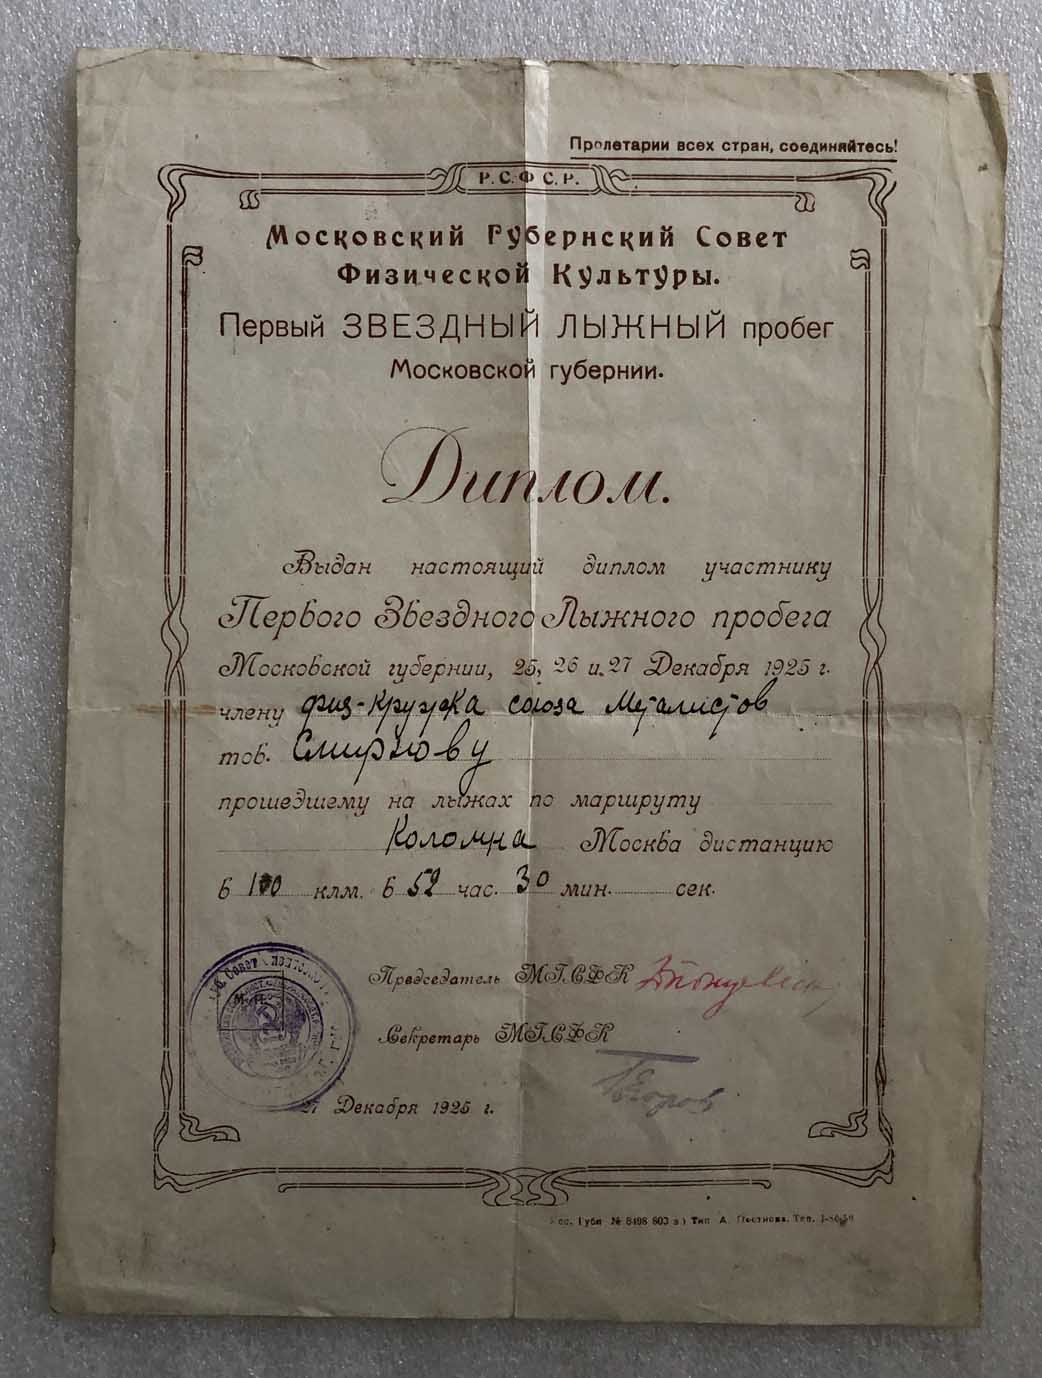 Пролетарии всех стран, соединяйтесь!
Р.С.Ф.С.Р.
Московский Губернский Совет
Физической Культуры.
Первый ЗВЕЗДНЫЙ ЛЫЖНЫЙ пробег
Московской губернии.
Диплом.
Выдан настоящий диплом участнику
Первого Звездного Лыжного пробега
Московской губернии, 25, 26 и 27 Декабря 1925 г.
члену физ-кружка союза Металистов
тов. Смирнову
прошедшему на лыжах по маршруту
Коломна Москва дистанцию
в 100 клм. в 52 час. 30 мин. сек.
Председатель МГСФК
Секретарь МГСФК
Егоров
Совет
М.П.
27 Декабря 1925 г.
№ 8498 Тип А.